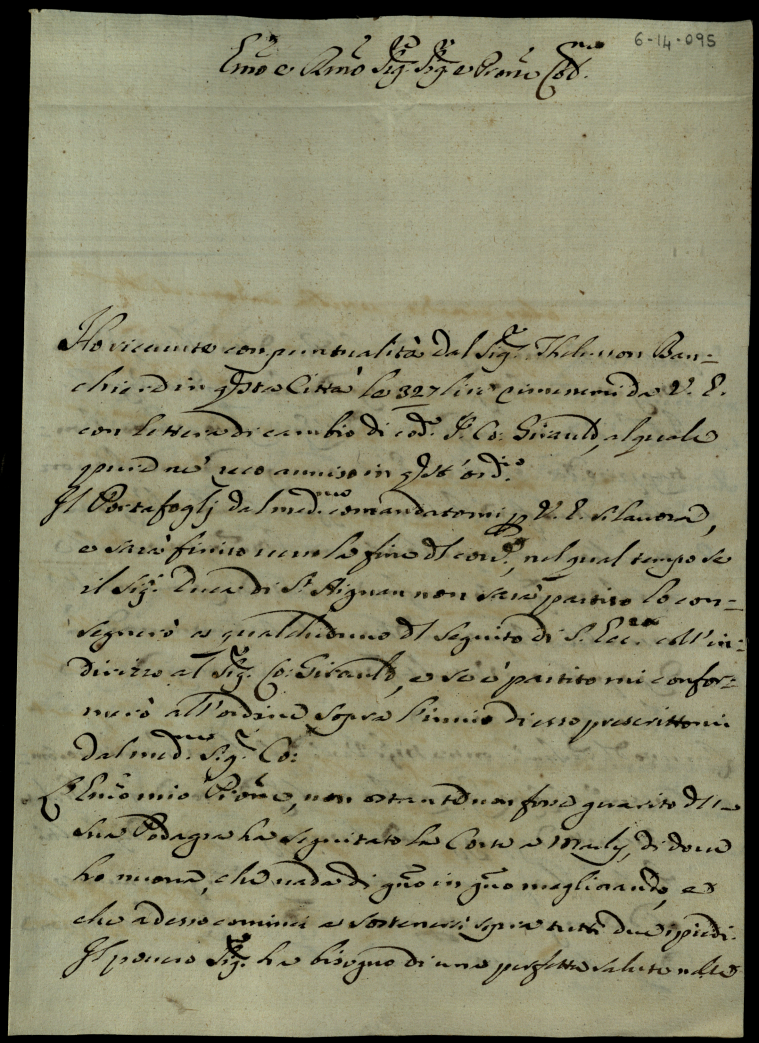 6-14-095
Emo e Rmo Sig.r Sig.e Prone Col.mo
Ho ricevute con puntualità dal Sig.r Thelusson Ban=
chiere in q̃sta Città le 327 lire rimessemi da V. E.
con lettera di cambio di cod. Sr. Co: Girauld, al quale
pure ne reco avviso in q̃st' ord.o
Il Portafoglj dal med.mo comandatomi p V. E. si lavora,
e sarà finito verso la fine dl cor.e, nel qual tempo se
il Sig.r Duca di St Aignan non sarà partito lo con=
segnerò a qualcheduno dl seguito di S. Ecc.za coll' in=
dirizzo al Sig.r Co: Girauld, e se è partito mi confor=
merò all' ordine sopra l'invio di esso prescrittomi
dal med.mo Sig.r Co:
L' Emo mio Prone, non ostante non fosse guarito dlla
sua Podagra ha seguitato la Corte a Marly, di dove
ho nuova, che vada di gno in gno megliorando, et
che adesso cominci a sostenersi sopra tutti due i piedi.
Il povero Sig.re ha bisogno di una perfetta salute nelle